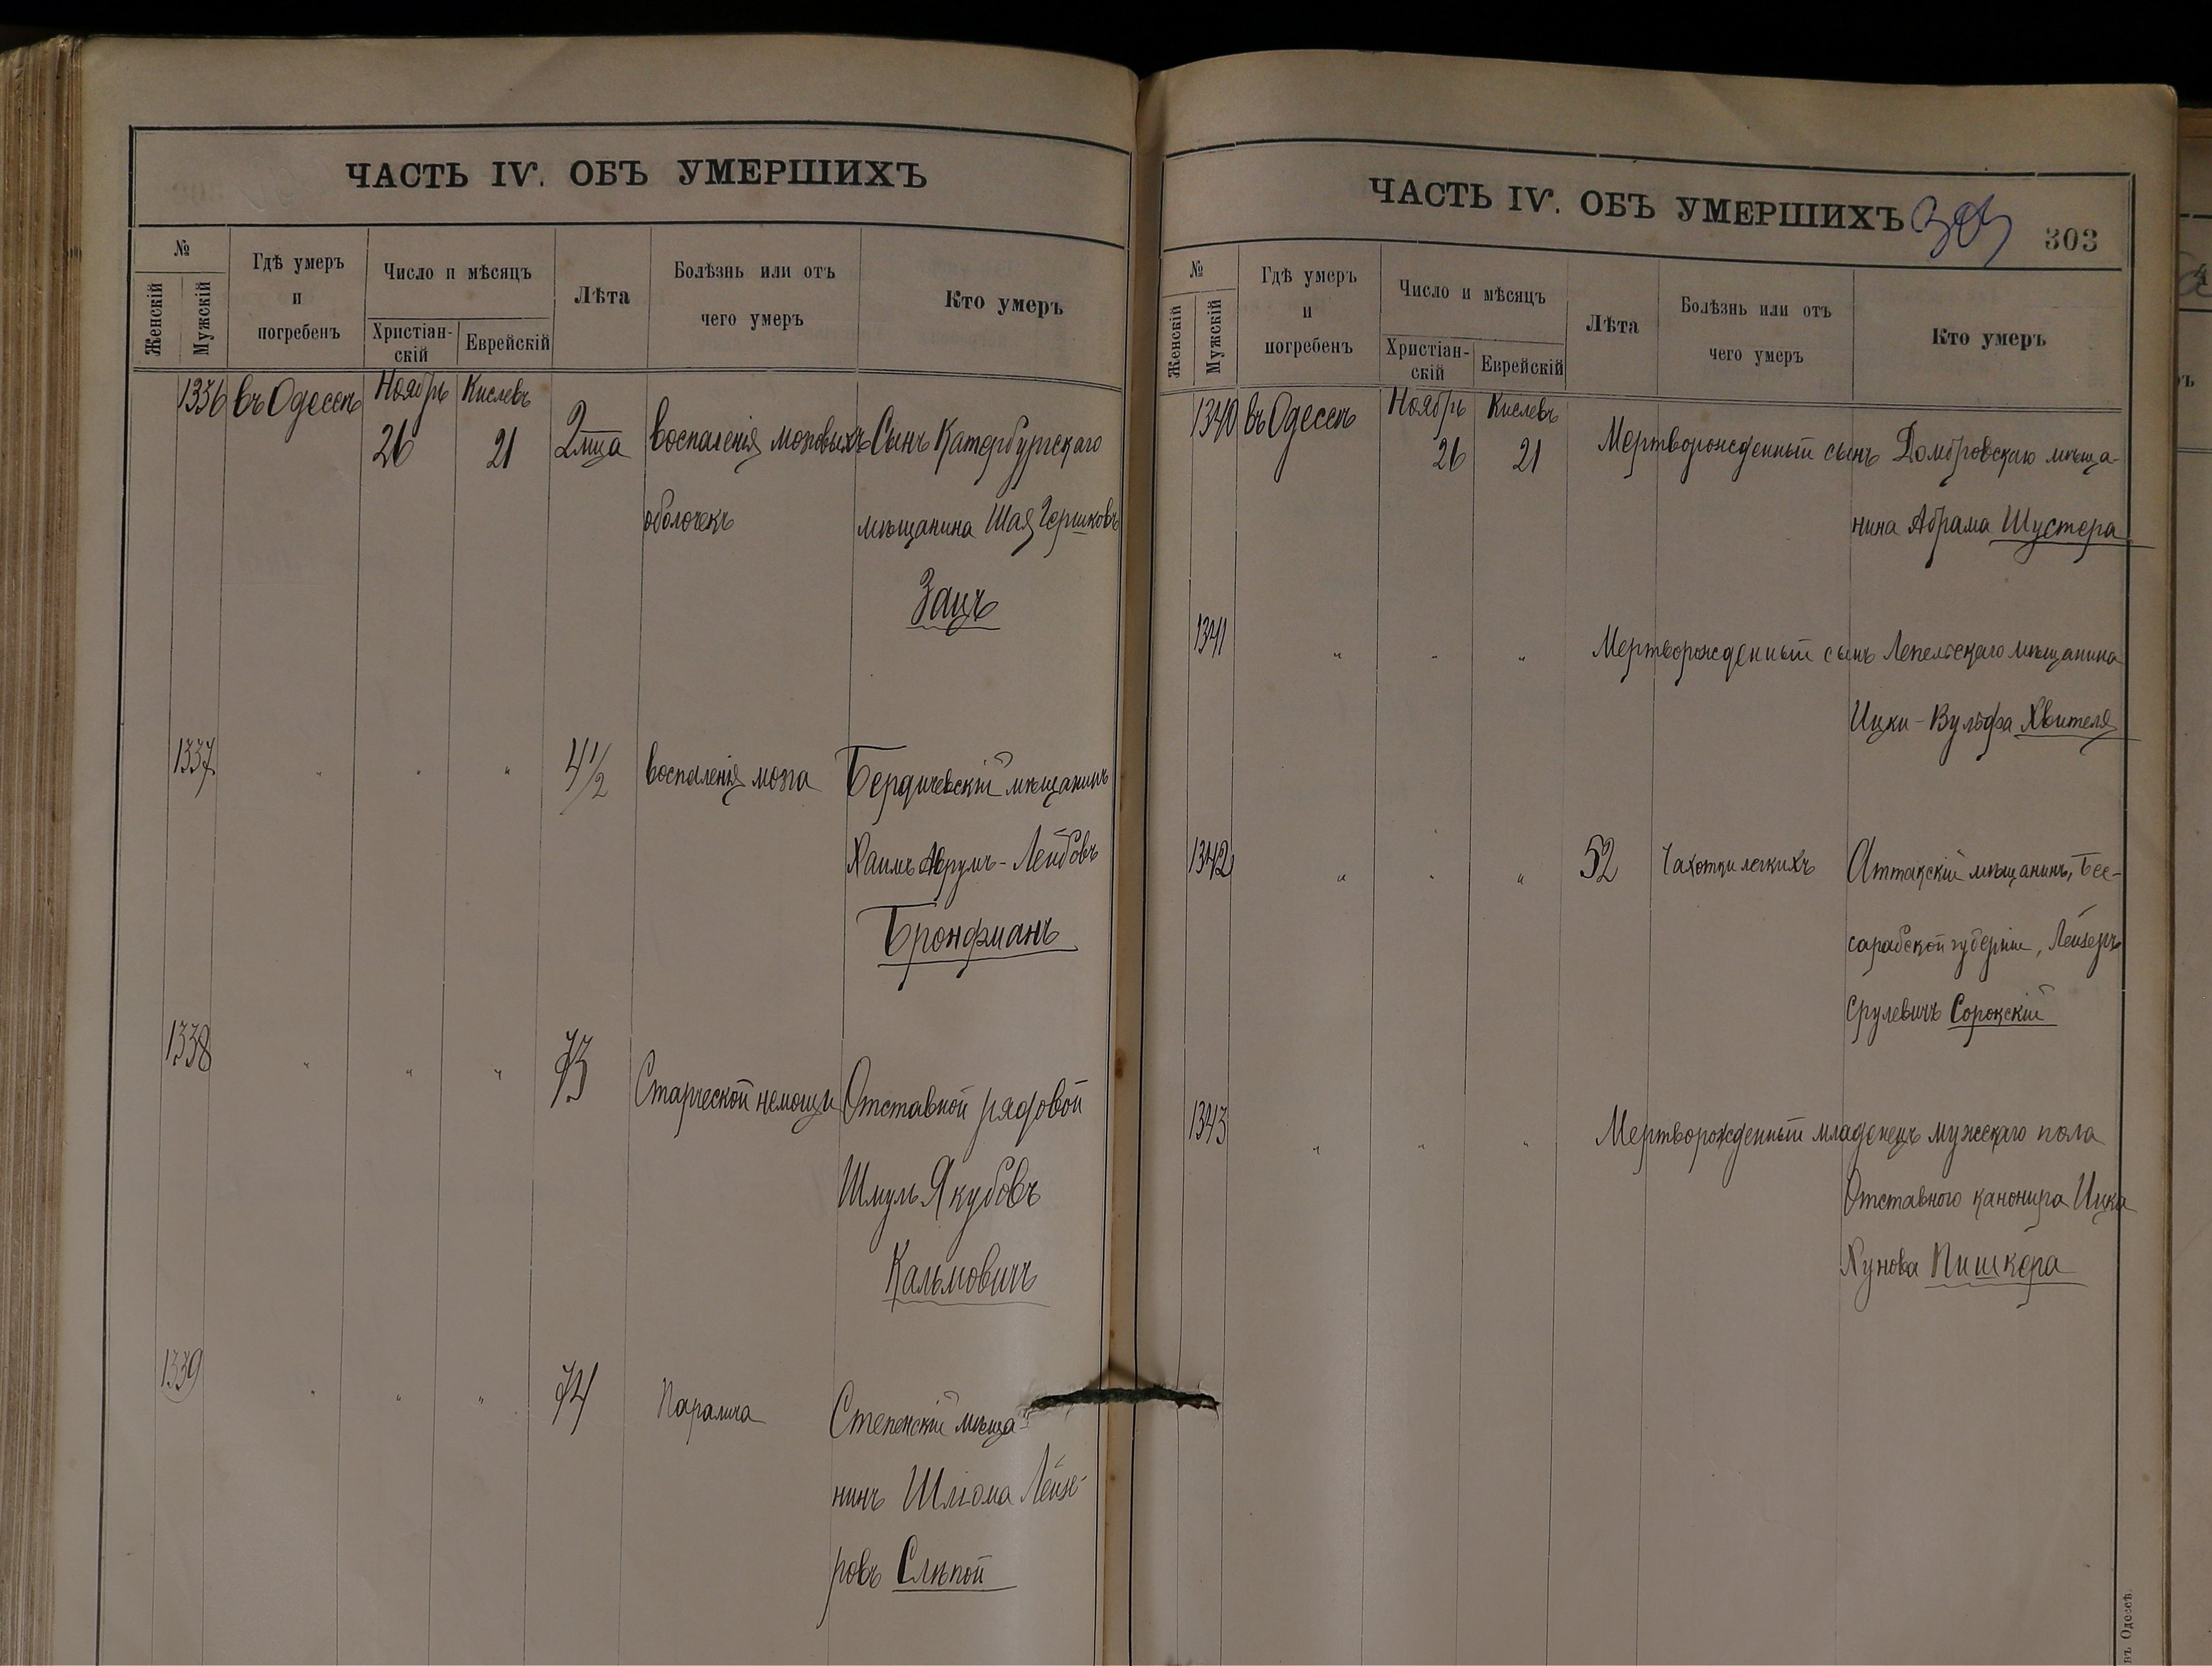 ЧАСТЬ IV. ОБЪ УМЕРШИХЪ
№
Женскій
Мужскій
Гдѣ умеръ
и
погребенъ
Число и мѣсяцъ
Христіан-
скій
Еврейскій
Лѣта
Болѣзнь или отъ
чего умеръ
Кто умеръ
1336 въ Одессѣ Ноябрь Кислевъ
26 21 2 м͠ца воспаленія мозговыхъ Сынъ Катербургскаго
оболочекъ мѣщанина Шая Гершковъ
Зацъ
1337 " " " 4 1/2 воспаленія мозга Бердичевскій мѣщанинъ
Хаимъ Аврумъ-Лейбовъ
Бронфманъ
1338 " " " 73 Старческой немощи Отставной рядовой
Шмуль Якубовъ
Кальмовичъ
1339 " " " 74 Паралича Степенскій мѣща-
нинъ Шліома Лейзе-
ровъ Слѣпой
ЧАСТЬ IV. ОБЪ УМЕРШИХЪ 303
303
№
Женскій
Мужскій
Гдѣ умеръ
и
погребенъ
Число и мѣсяцъ
Христіан-
скій
Еврейскій
Лѣта
Болѣзнь или отъ
чего умеръ
Кто умеръ
1340 въ Одессѣ Ноябрь Кислевъ
26 21 Мертворожденный сынъ Домбровскаго мѣща-
нина Абрама Шустера
1341 " " " Мертворожденный сынъ Лепельскаго мѣщанина
Ицки-Вульфа Хвителя
1342 " " " 52 Чахотки легкихъ Аттакскій мѣщанинъ, Бес-
сарабской губерніи, Лейзеръ
Срулевичъ Сорокскій
1343 " " " Мертворожденный младенецъ мужскаго пола
Отставного канонира Ицка
Хунова Пишкера
въ Одессѣ